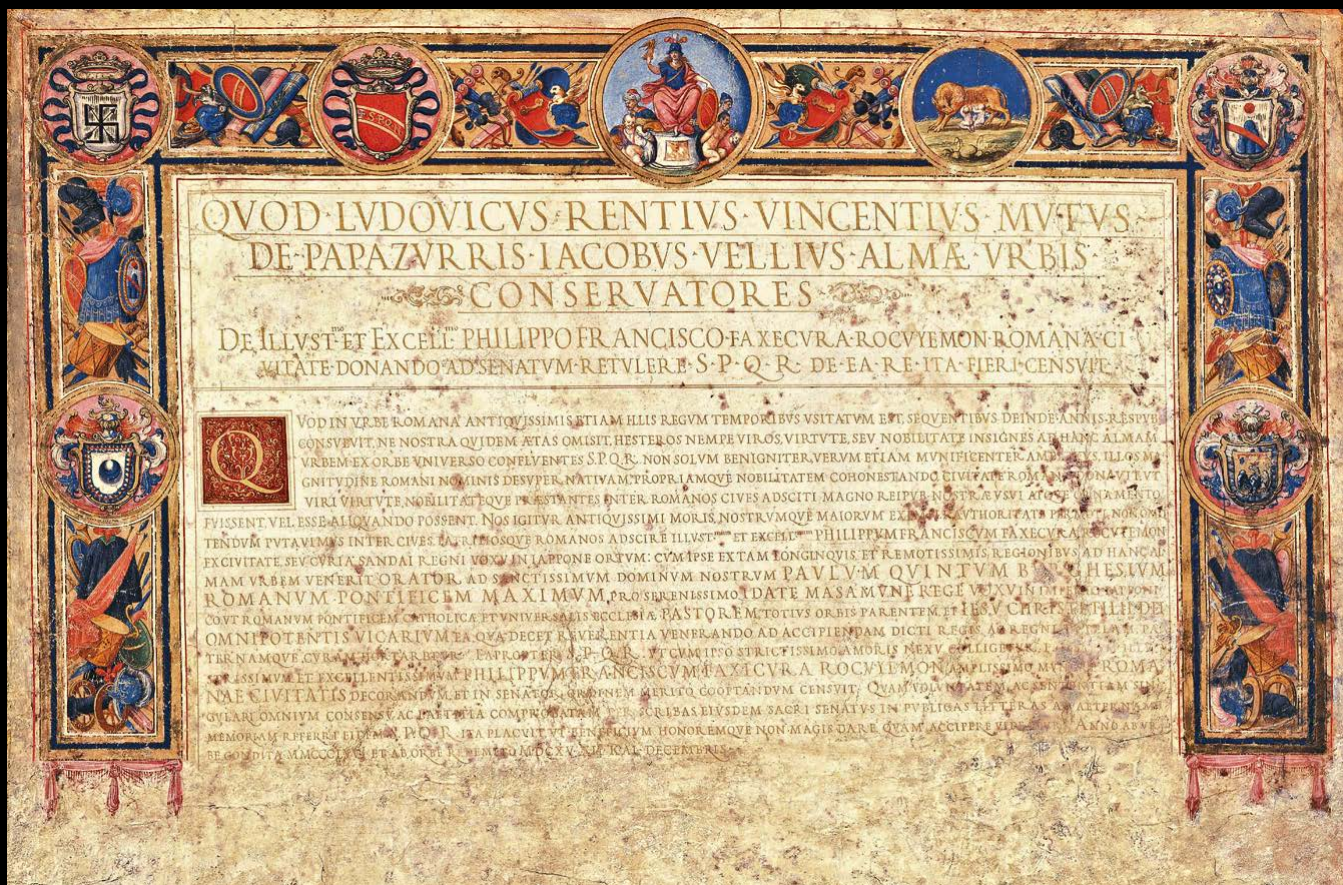 S·P·Q·R
QVOD·LVDOVICVS·RENTIVS·VINCENTIVS·MVTVS·
DE·PAPAZVRRIS·IACOBVS·VELLIVS·ALMÆ·VRBIS·
CONSERVATORES
DE ILLVSTmo ET EXCELLmo PHILIPPO FRANCISCO·FAXECVRA·ROCVYEMON·ROMANA·CI
VITATE·DONANDO·AD·SENATVM·RETVLERE·S·P·Q·R·DE·EA·RE·ITA·FIERI·CENSVIT·
QVOD IN VRBE ROMANA ANTIQVISSIMIS ETIAM ILLIS REGVM TEMPORIBVS VSITATVM EST, SEQVENTIBVS DEINDE ANNIS RESPVB
CONSVEVIT, NE NOSTRA QVIDEM ÆTAS OMISIT, HESTEROS NEMPE VIROS, VIRTVTE, SEV NOBILITATE INSIGNES AD HANC ALMAM
VRBEM EX ORBE VNIVERSO CONFLVENTES S.P.Q.R. NON SOLVM BENIGNITER, VERVM ETIAM MVNIFICENTER ILLOS MA
GNITVDINE ROMANI NOMINIS DESVPER NATIVAM, PROPRIAMQVE NOBILITATEM COHONESTANDO CIVITATE ROMANA DONAVIT, VT
VIRI VIRTVTE NOBILITATEQVE PRÆSTANTES INTER ROMANOS CIVES ADSCITI MAGNO REIPVB. NOSTRÆ VSVI ATQVE ORNAMENTO
FVISSENT, VEL ESSE ALIQVANDO POSSENT. NOS IGITVR ANTIQVISSIMI MORIS, NOSTRVMQVE MAIORVM AVTHORITATE NON OMI
TENDVM PVTAVIMVS INTER CIVES PATRITIOSQVE ROMANOS ADSCIRE ILLVSTmum ET EXCELLmum PHILIPPVM FRANCISCVM FAXECVRA ROCVYEMON
EX CIVITATE SEV CVRIA SANDAI REGNI VOXV IN IAPPONE ORTVM: CVM IPSE EX TAM LONGINQVIS, ET REMOTISSIMIS REGIONIBVS AD HANC AL
MAM VRBEM VENERIT ORATOR AD SANCTISSIMVM DOMINVM NOSTRVM PAVLVM QVINTVM BVRGHESIVM
ROMANVM PONTIFICEM MAXIMVM, PRO SERENISSIMO IDATE MASAMVNE REGE VOXV IN
ROMANVM PONTIFICEM CATHOLICÆ ET VNIVERSALIS ECCLESIÆ PASTOREM, TOTIVS ORBIS PARENTEM, ET IESV CHRISTI FILII DEI
OMNIPOTENTIS VICARIVM EA QVA DECET REVERENTIA VENERANDO AD ACCIPIENDAM DICTI REGIS AC REGNI PA
TERNAMQVE CVRAM HORTARETVR. EAPROPTER S.P.Q.R. VT CVM IPSO STRICTISSIMO AMORIS NEXV
ET EXCELLENTISSIMVM PHILIPPVM FRANCISCVM FAXICVRA ROCVYEMON AMPLISSIMO ROMA
NAE CIVITATIS DECORANDVM, ET IN SENATOR. ORDINEM MERITO COOPTANDVM CENSVIT; QVAM VOLVNTATEM, AC SENTENTIAM SIN
GVLARI OMNIVM CONSENSV AC COMPROBATAM PER SCRIBAS EIVSDEM SACRI SENATVS IN PVBLICAS LITTERAS AD ÆTERNAM
MEMORIAM REFERRI EIDEM S.P.Q.R. ITA PLACVIT, VT BENEFICIVM HONOREMQVE NON MAGIS DARE, QVAM ACCIPERE ANNO AB VR
BE CONDITA ET AB ORBE REDEMPTO MDCXV·XII·KAL·DECEMBRIS